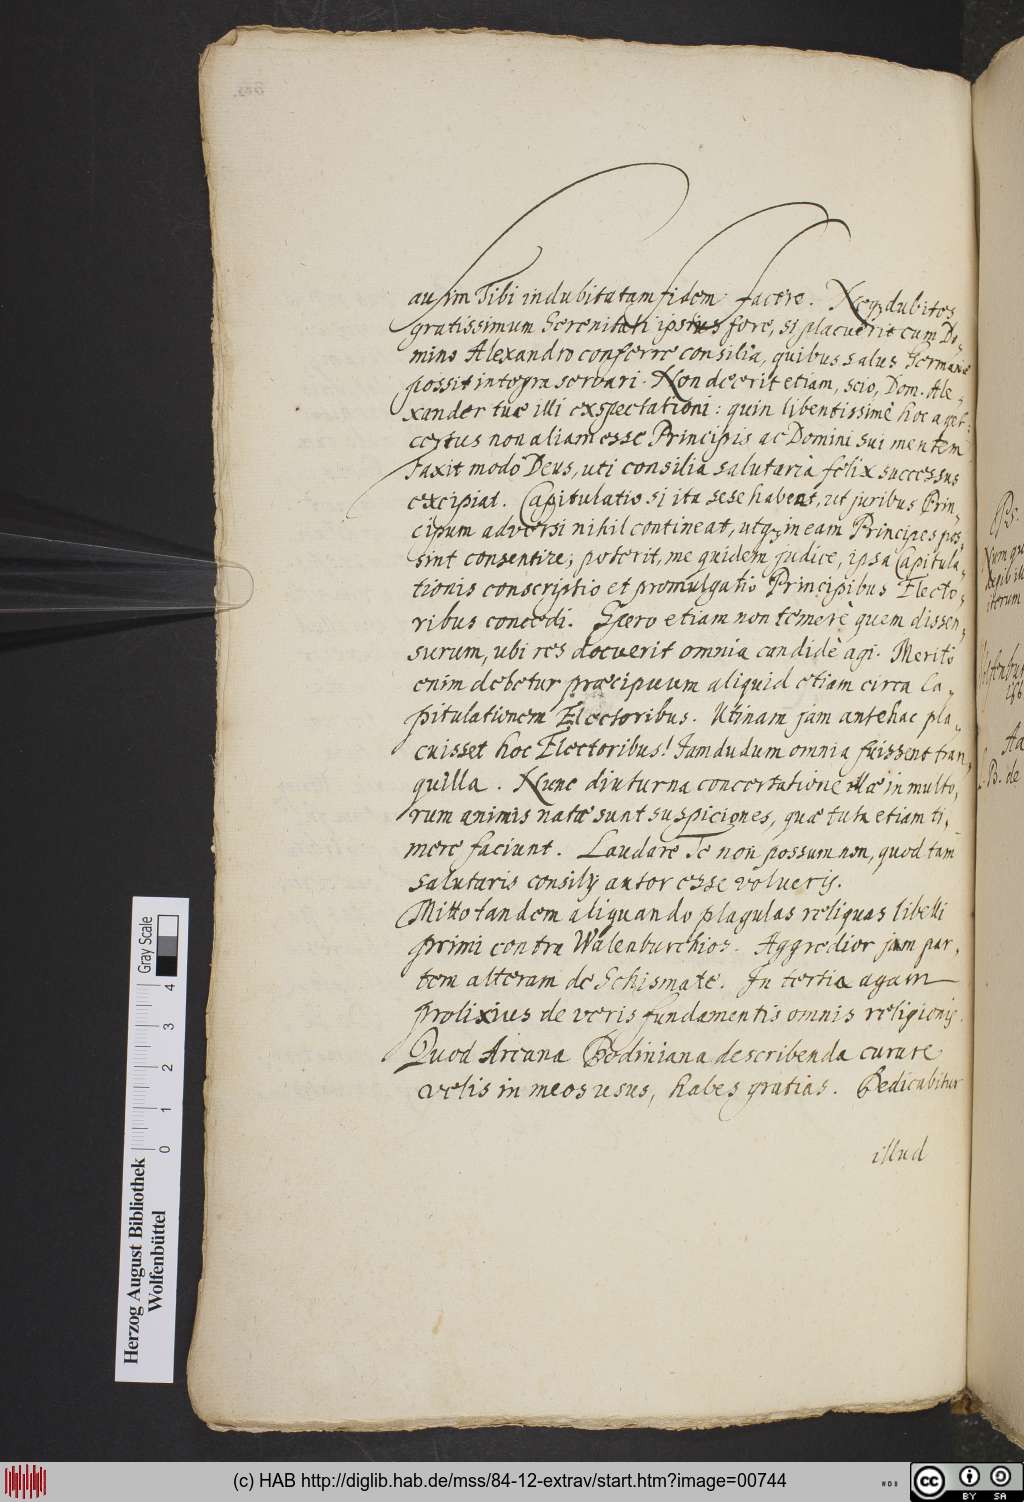 ausim Tibi indubitatam fidem facere. Neq; dubites
gratissimum Serenitati ipsius fore, si placuerit cum Do-
mino Alexandro conferre consilia, quibus salus Germaniæ
possit integra servari. Non deerit etiam, scio, Dom. Ale-
xander tuæ illi exspectationi: quin libentissimè hoc aget:
certus non aliam esse Principis ac Domini sui mentem
Faxit modò Deus, uti consilia salutaria felix successus
excipiat. Capitulatio si ita sese habeat, ut juribus Prin-
cipum adversi nihil contineat, utq; in eam Principes pos-
sint consentire, poterit, me quidem judice, ipsa Capitula-
tionis conscriptio et promulgatio Principibus Electo-
ribus concedi. Spero etiam non temerè quem dissen-
surum, ubi res docuerit omnia candidè agi. Meritò
enim debetur præcipuum aliquid etiam circa Ca-
pitulationem Electoribus. Utinam jam antehac pla-
cuisset hoc Electoribus! Jamdudum omnia fuissent tran-
quilla. Nunc diuturna concertatione illæ in multo-
rum animis natæ sunt suspiciones, quæ tuta etiam ti-
mere faciunt. Laudare Te non possum non, quod tam
salutaris consilij autor esse volueris.
Mitto tandem aliquando plagulas reliquas libelli
primi contra Walenburchios. Aggredior jam par-
tem alteram de Schismate. In tertia agam
prolixius de veris fundamentis omnis religionis.
Quod Arcana Bodiniana describenda curare
velis in meos usus, habes gratias. Dedicabitur
illud
Ps.
Num
iterum
B. de
Herzog August Bibliothek
Wolfenbüttel
0 1 2 3 4
Gray Scale
(c) HAB http://diglib.hab.de/mss/84-12-extrav/start.htm?image=00744
cc BY SA